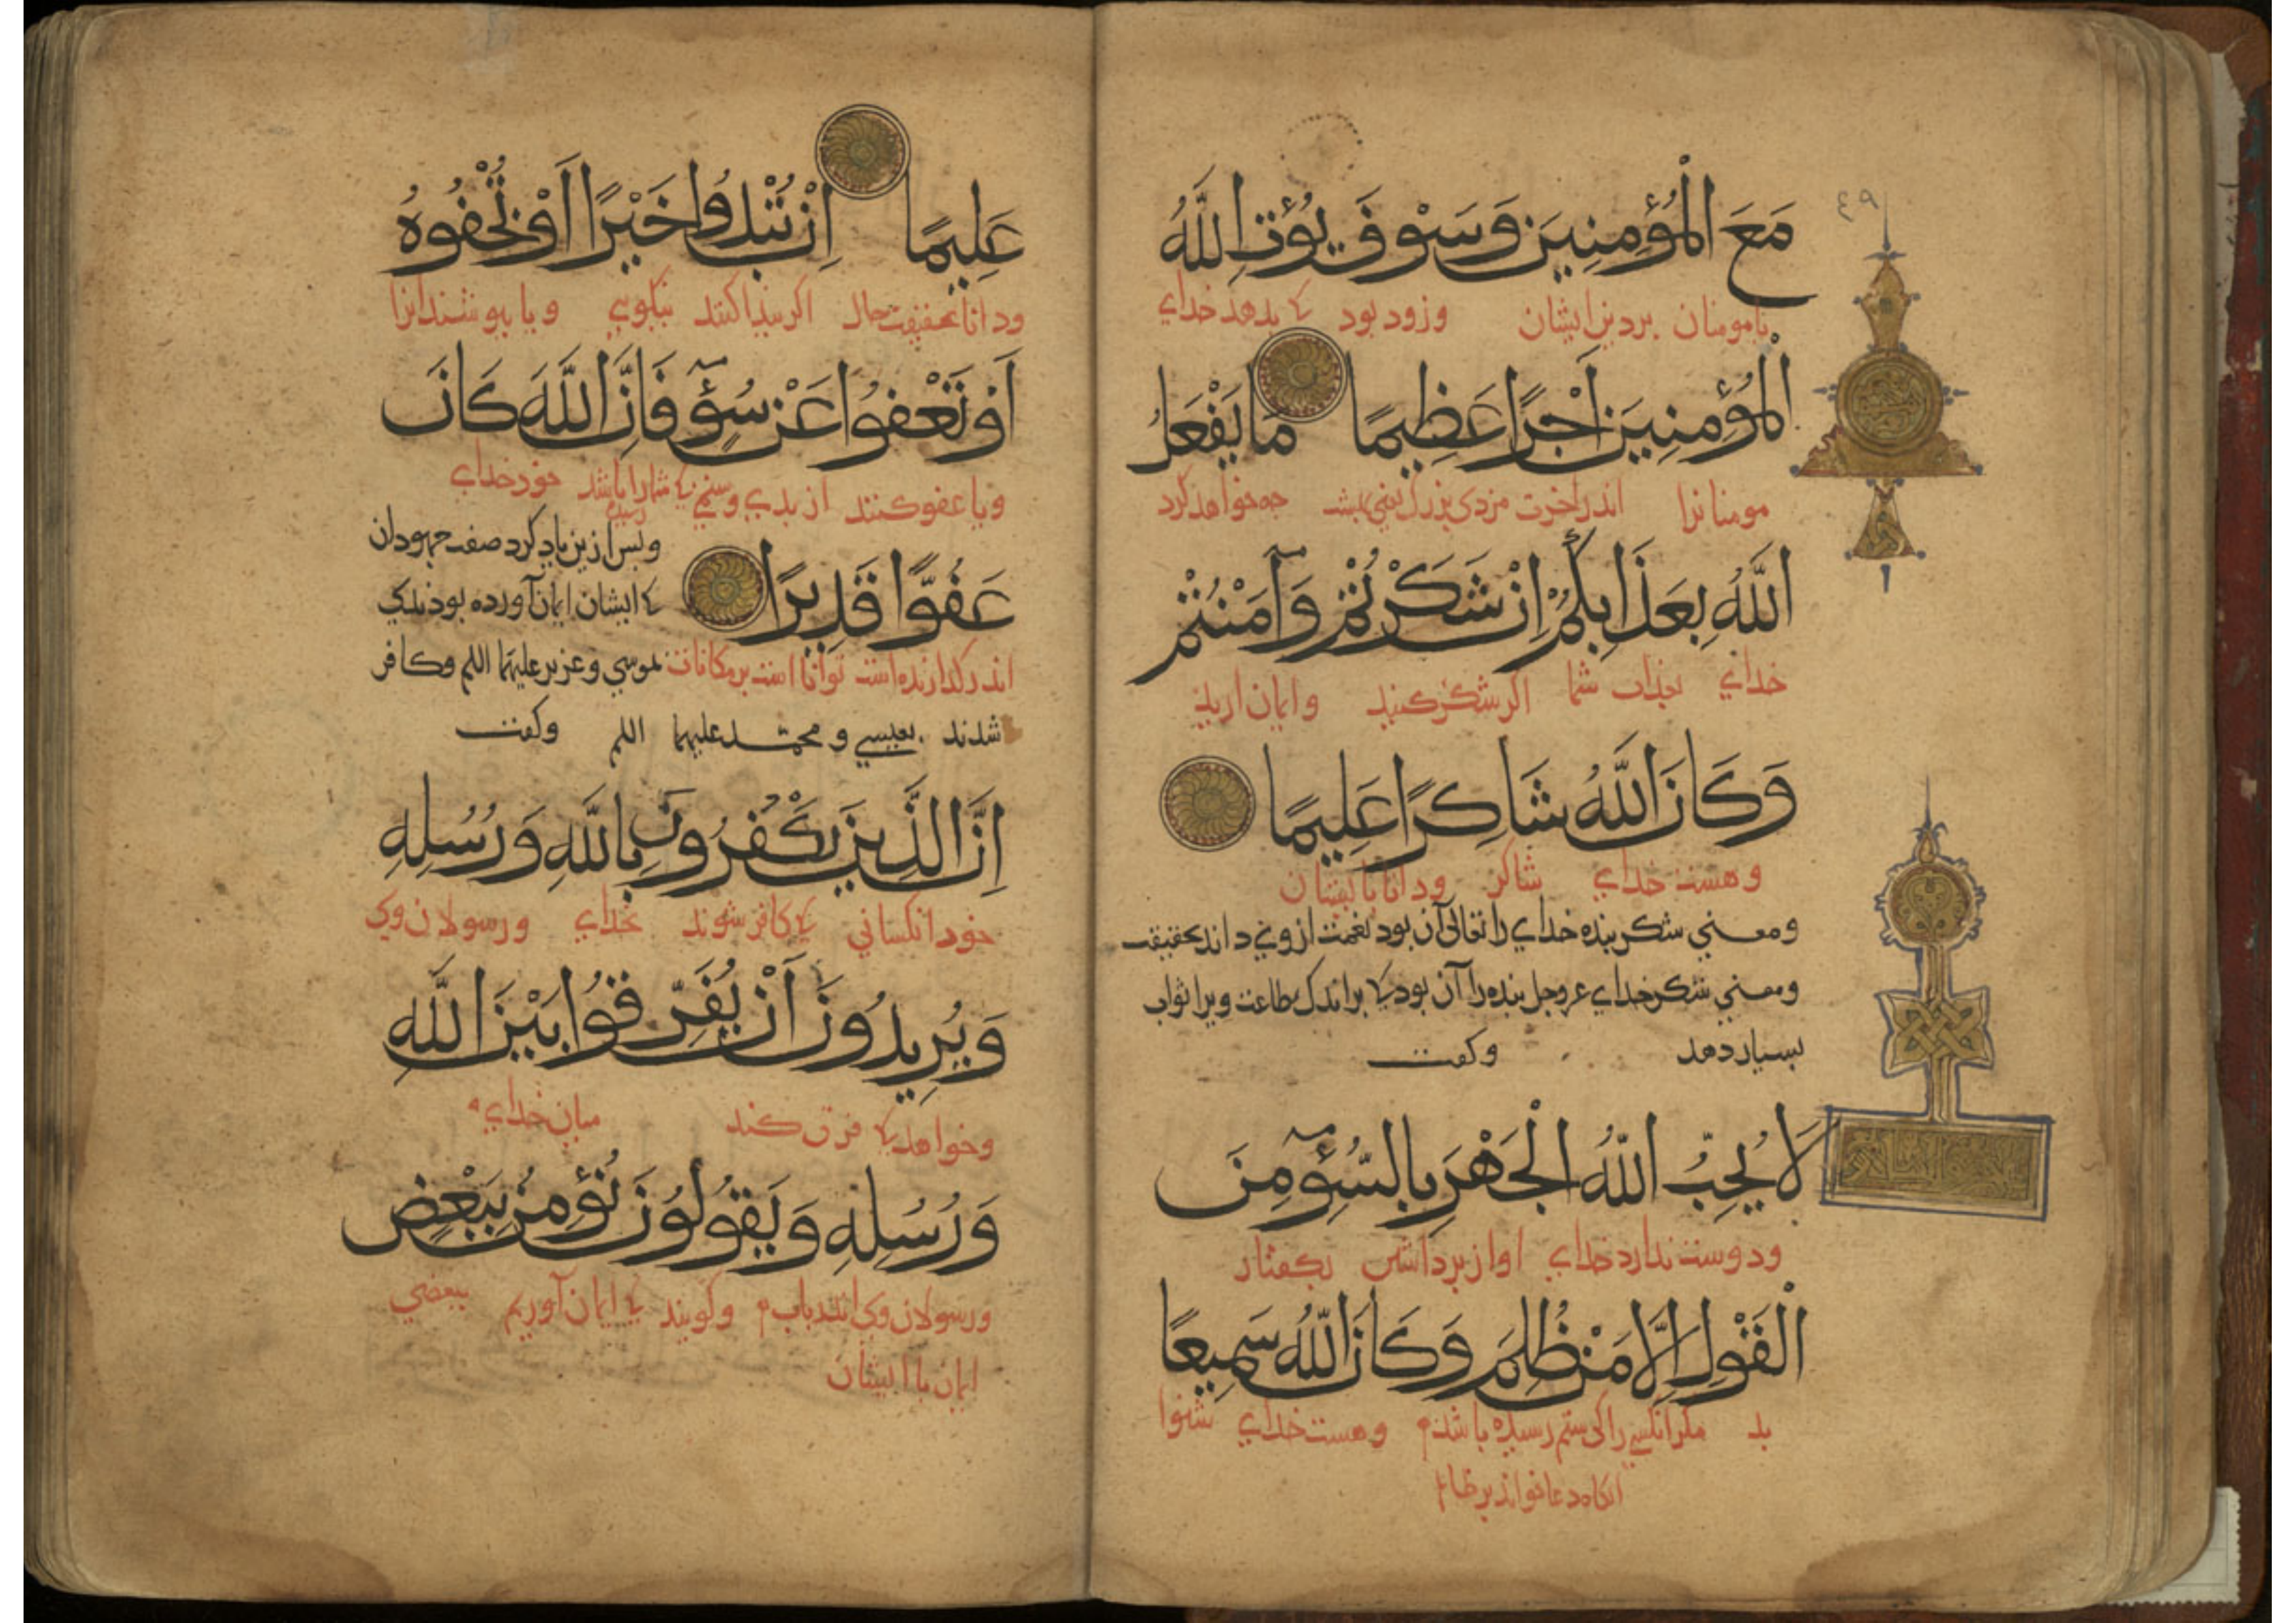 مَعَ الْمُؤْمِنِينَ وَسَوْفَ يُؤْتِ اللَّهُ
بامومنان بردین ایشان وزود بود که بدهد خدای
الْمُؤْمِنِينَ أَجْرًا عَظِيمًا مَا يَفْعَلُ
مومنانرا اندر اخرت مزدی بزرک جه خواهد کرد
اللَّهُ بِعَذَابِكُمْ اِنْ شَكَرْتُمْ وَآمَنْتُمْ
خدای بعذاب شما اکر شکر کنید وایمان ارید
وَكَانَ اللَّهُ شَاكِرًا عَلِيمًا
وهست خدای شاکر ودانا بایشان
ومعنی شکر بنده خدای را تعالی آن بود نعمت ازوی داند بحقیقت
ومعنی شکر خدای عزوجل بنده را آن بود که براندک طاعت ویرا ثواب
بسیار دهد وکفت
لَا يُحِبُّ اللَّهُ الْجَهْرَ بِالسُّوءِ مِنَ
ودوست ندارد خدای اواز برداشتن بکفتار
الْقَوْلِ اِلَّا مَنْ ظُلِمَ وَكَانَ اللَّهُ سَمِيعًا
بد مکر انکسی را کی ستم رسیده باشد وهست خدای شنوا
عَلِيمًا اِنْ تُبْدُوا خَيْرًا أَوْ تُخْفُوهُ
ودانا بحقیقت حال اکر بیدا کنند نیکویی ویا ببوشند انرا
أَوْ تَعْفُوا عَنْ سُوءٍ فَاِنَّ اللَّهَ كَانَ
ویا عفو کنند از بدی وستمی که شمارا باشد خود خدای
رسیده
عَفُوًّا قَدِيرًا
وبس ازین یاد کرد صفت جهودان
که ایشان ایمان آورده بودند
اندر کذارنده است توانا است بر مکافات بموسی وعزیر علیهما السلم وکافر
شدند بعیسی و محمد علیهما السلم وکفت
اِنَّ الَّذِينَ يَكْفُرُونَ بِاللَّهِ وَرُسُلِهِ
خود انکسانی که کافر شوند بخدای ورسولان وی
وَيُرِيدُونَ أَنْ يُفَرِّقُوا بَيْنَ اللَّهِ
وخواهند که فرق کنند میان خدای
وَرُسُلِهِ وَيَقُولُونَ نُؤْمِنُ بِبَعْضٍ
ورسولان وی وکویند که ایمان آوریم ببعضی